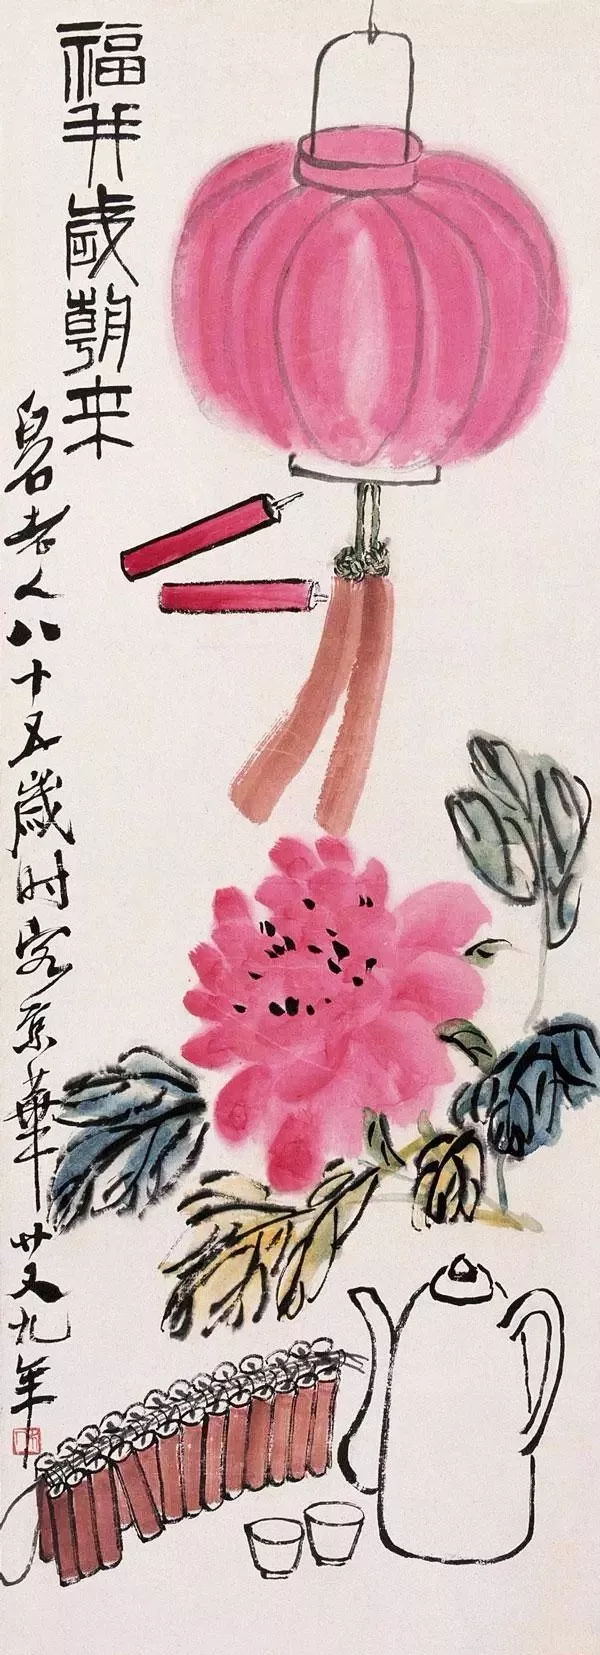 福并歲朝来
白石老人八十五歲时客京華廿又九年